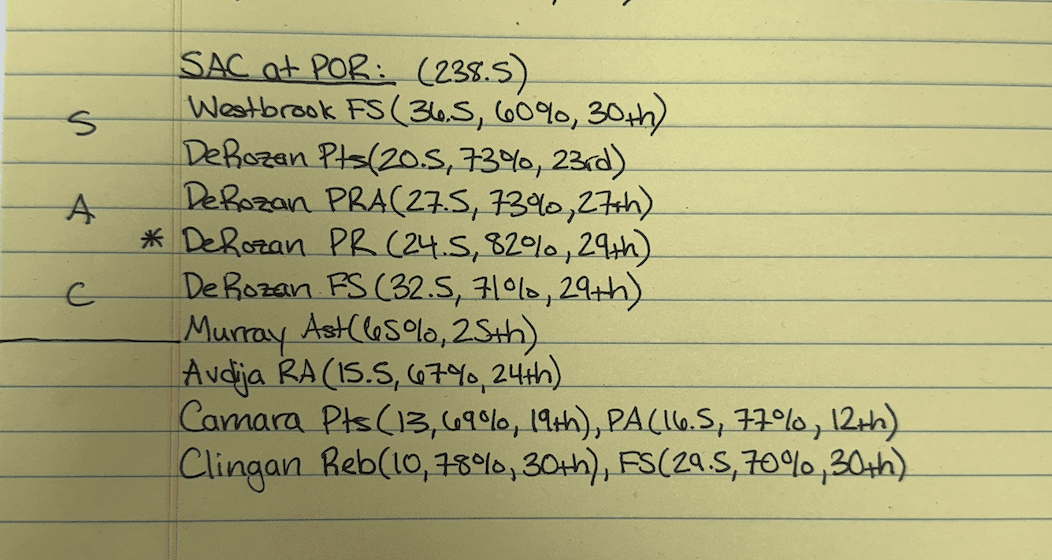 SAC at POR: (238.5)
Westbrook FS (36.5, 60%, 30th)
S
DeRozan Pts (20.5, 73%, 23rd)
DeRozan PRA (27.5, 73%, 27th)
A
* DeRozan PR (24.5, 82%, 29th)
DeRozan FS (32.5, 71%, 29th)
C
Murray Ast (65%, 25th)
Avdija RA (15.5, 67%, 24th)
Camara Pts (13, 69%, 19th), PA (16.5, 77%, 12th)
Clingan Reb (10, 78%, 30th), FS (29.5, 70%, 30th)